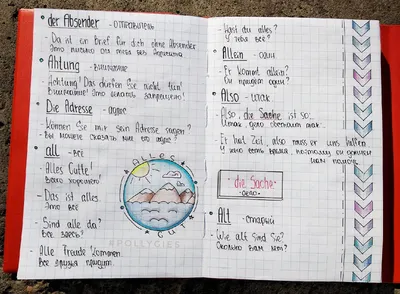 der Absender - отправитель
- Da ist ein Brief für dich ohne Absender
Это письмо для тебя без адресата
Achtung - внимание
- Achtung! Das dürfen Sie nicht tun!
Внимание! Это делать запрещено!
Die Adresse - адрес
- Können Sie mir sein Adresse sagen?
- Вы можете сказать мне его адрес?
all - все
- Alles Gutte!
Всего хорошего!
- Das ist alles
Это все
- Sind alle da?
Все здесь?
- Alle Freude kommen.
Все друзья придут.
ALLES
Gut
@POLLYGIES
- Hast du alles?
У тебя все?
Allein - один
- Er kommt allein?
Он придет один?
Also - итак
- Also, die Sache ist so...
Итак, дело обстоит так..
- Er hat Zeit, also muss er uns helfen
У него есть время, поэтому он должен
нам помочь.
die Sache
- дело -
Alt - старый
- Wie alt sind Sie?
Сколько вам лет?